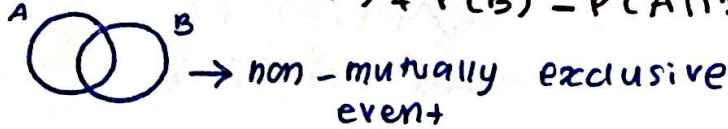 + P(B) - P(A
A
B
→ non-mutually exclusive
event